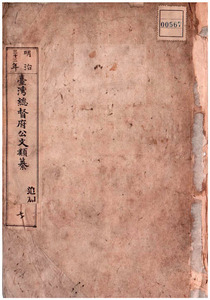 00567
明治
三十三年
臺灣總督府公文類纂
追加
七